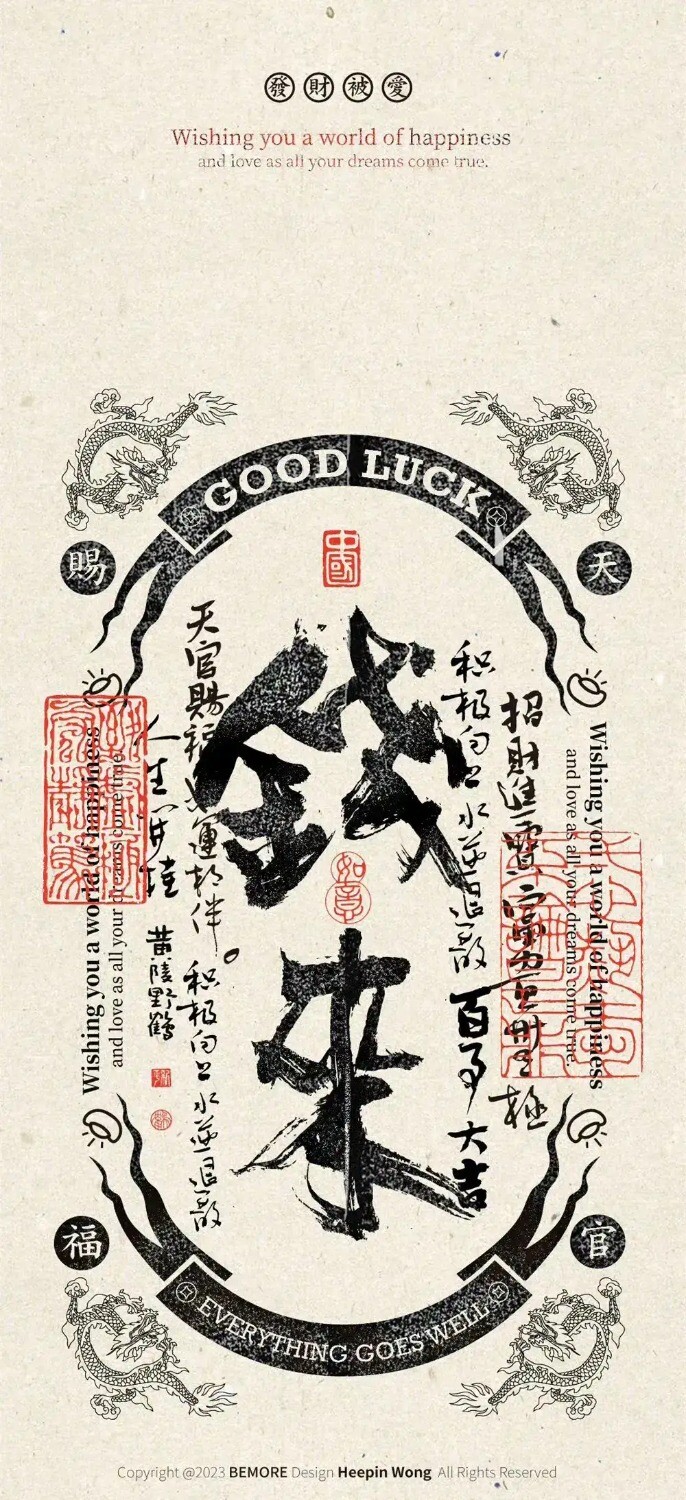 發財被愛
Wishing you a world of happiness
and love as all your dreams come true.
GOOD LUCK
中國
賜
天
錢來
如意
招財進寶
極
积极向上水逆退散
百事大吉
天官賜福
好運相伴
积极向上水逆退散
人生
黄陵野鶴
Wishing you a world of happiness
and love as all your dreams come true.
Wishing you a world of happiness
and love as all your dreams come true.
福
官
EVERYTHING GOES WELL
Copyright @2023 BEMORE Design Heepin Wong All Rights Reserved